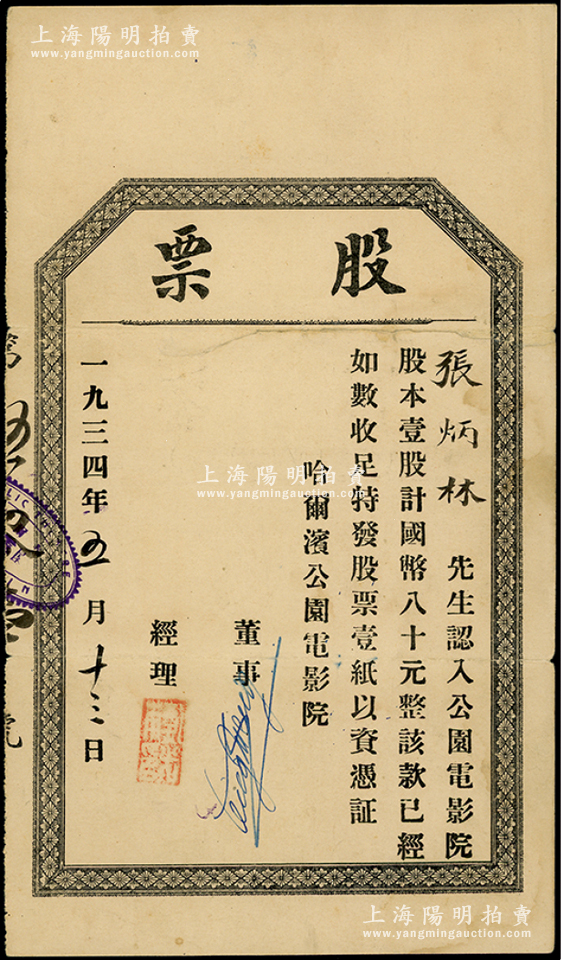 上海陽明拍賣
www.yangmingauction.com
股票
張炳林 先生認入公園電影院
股本壹股計國幣八十元整該款已經
如數收足持發股票壹紙以資憑証
哈爾濱公園電影院
董事
經理
一九三四年 五 月 十三 日
上海陽明拍賣
www.yangmingauction.com
上海陽明拍賣
www.yangmingauction.com